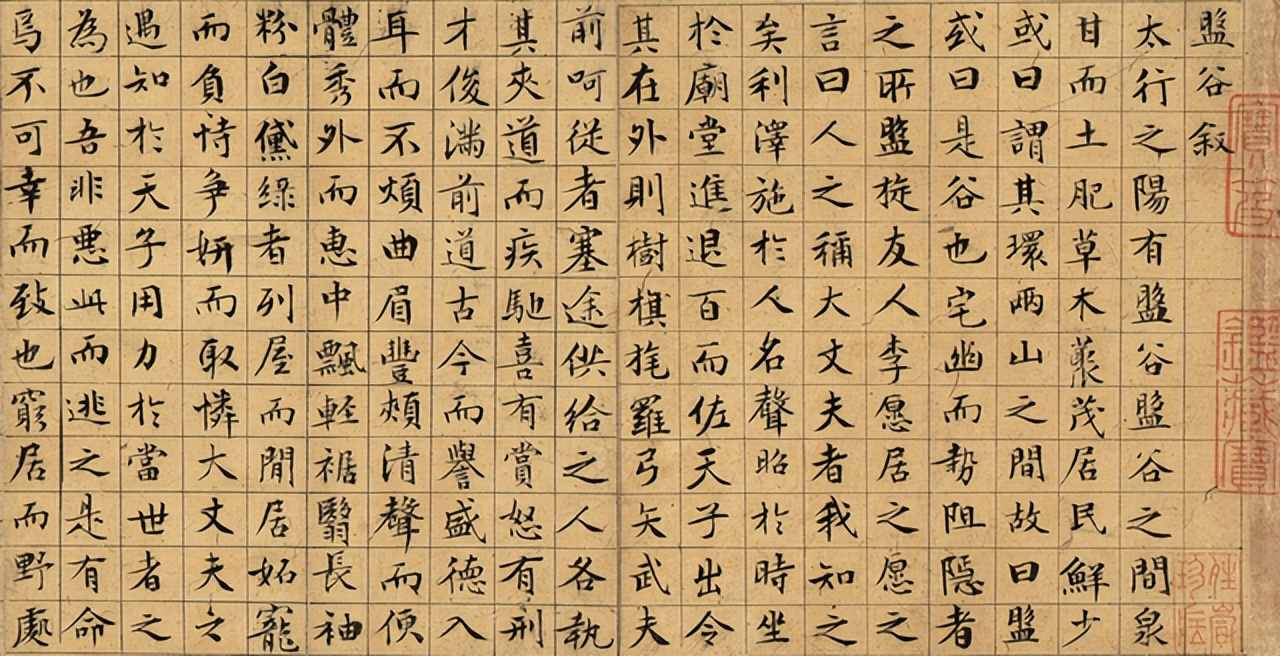 盤谷叙
太行之陽有盤谷盤谷之間泉
甘而土肥草木藂茂居民鮮少
或曰謂其環兩山之間故曰盤
或曰是谷也宅幽而勢阻隱者
之所盤旋友人李愿居之愿之
言曰人之稱大丈夫者我知之
矣利澤施於人名聲昭於時坐
於廟堂進退百而佐天子出令
其在外則樹旗旄羅弓矢武夫
前呵從者塞途供給之人各執
其夾道而疾馳喜有賞怒有刑
才俊滿前道古今而譽盛德入
耳而不煩曲眉豐頰清聲而便
體秀外而惠中飄輕裾翳長袖
粉白黛綠者列屋而閒居妬寵
而負恃爭妍而取憐大丈夫之
遇知於天子用力於當世者之
為也吾非惡此而逃之是有命
焉不可幸而致也窮居而野處